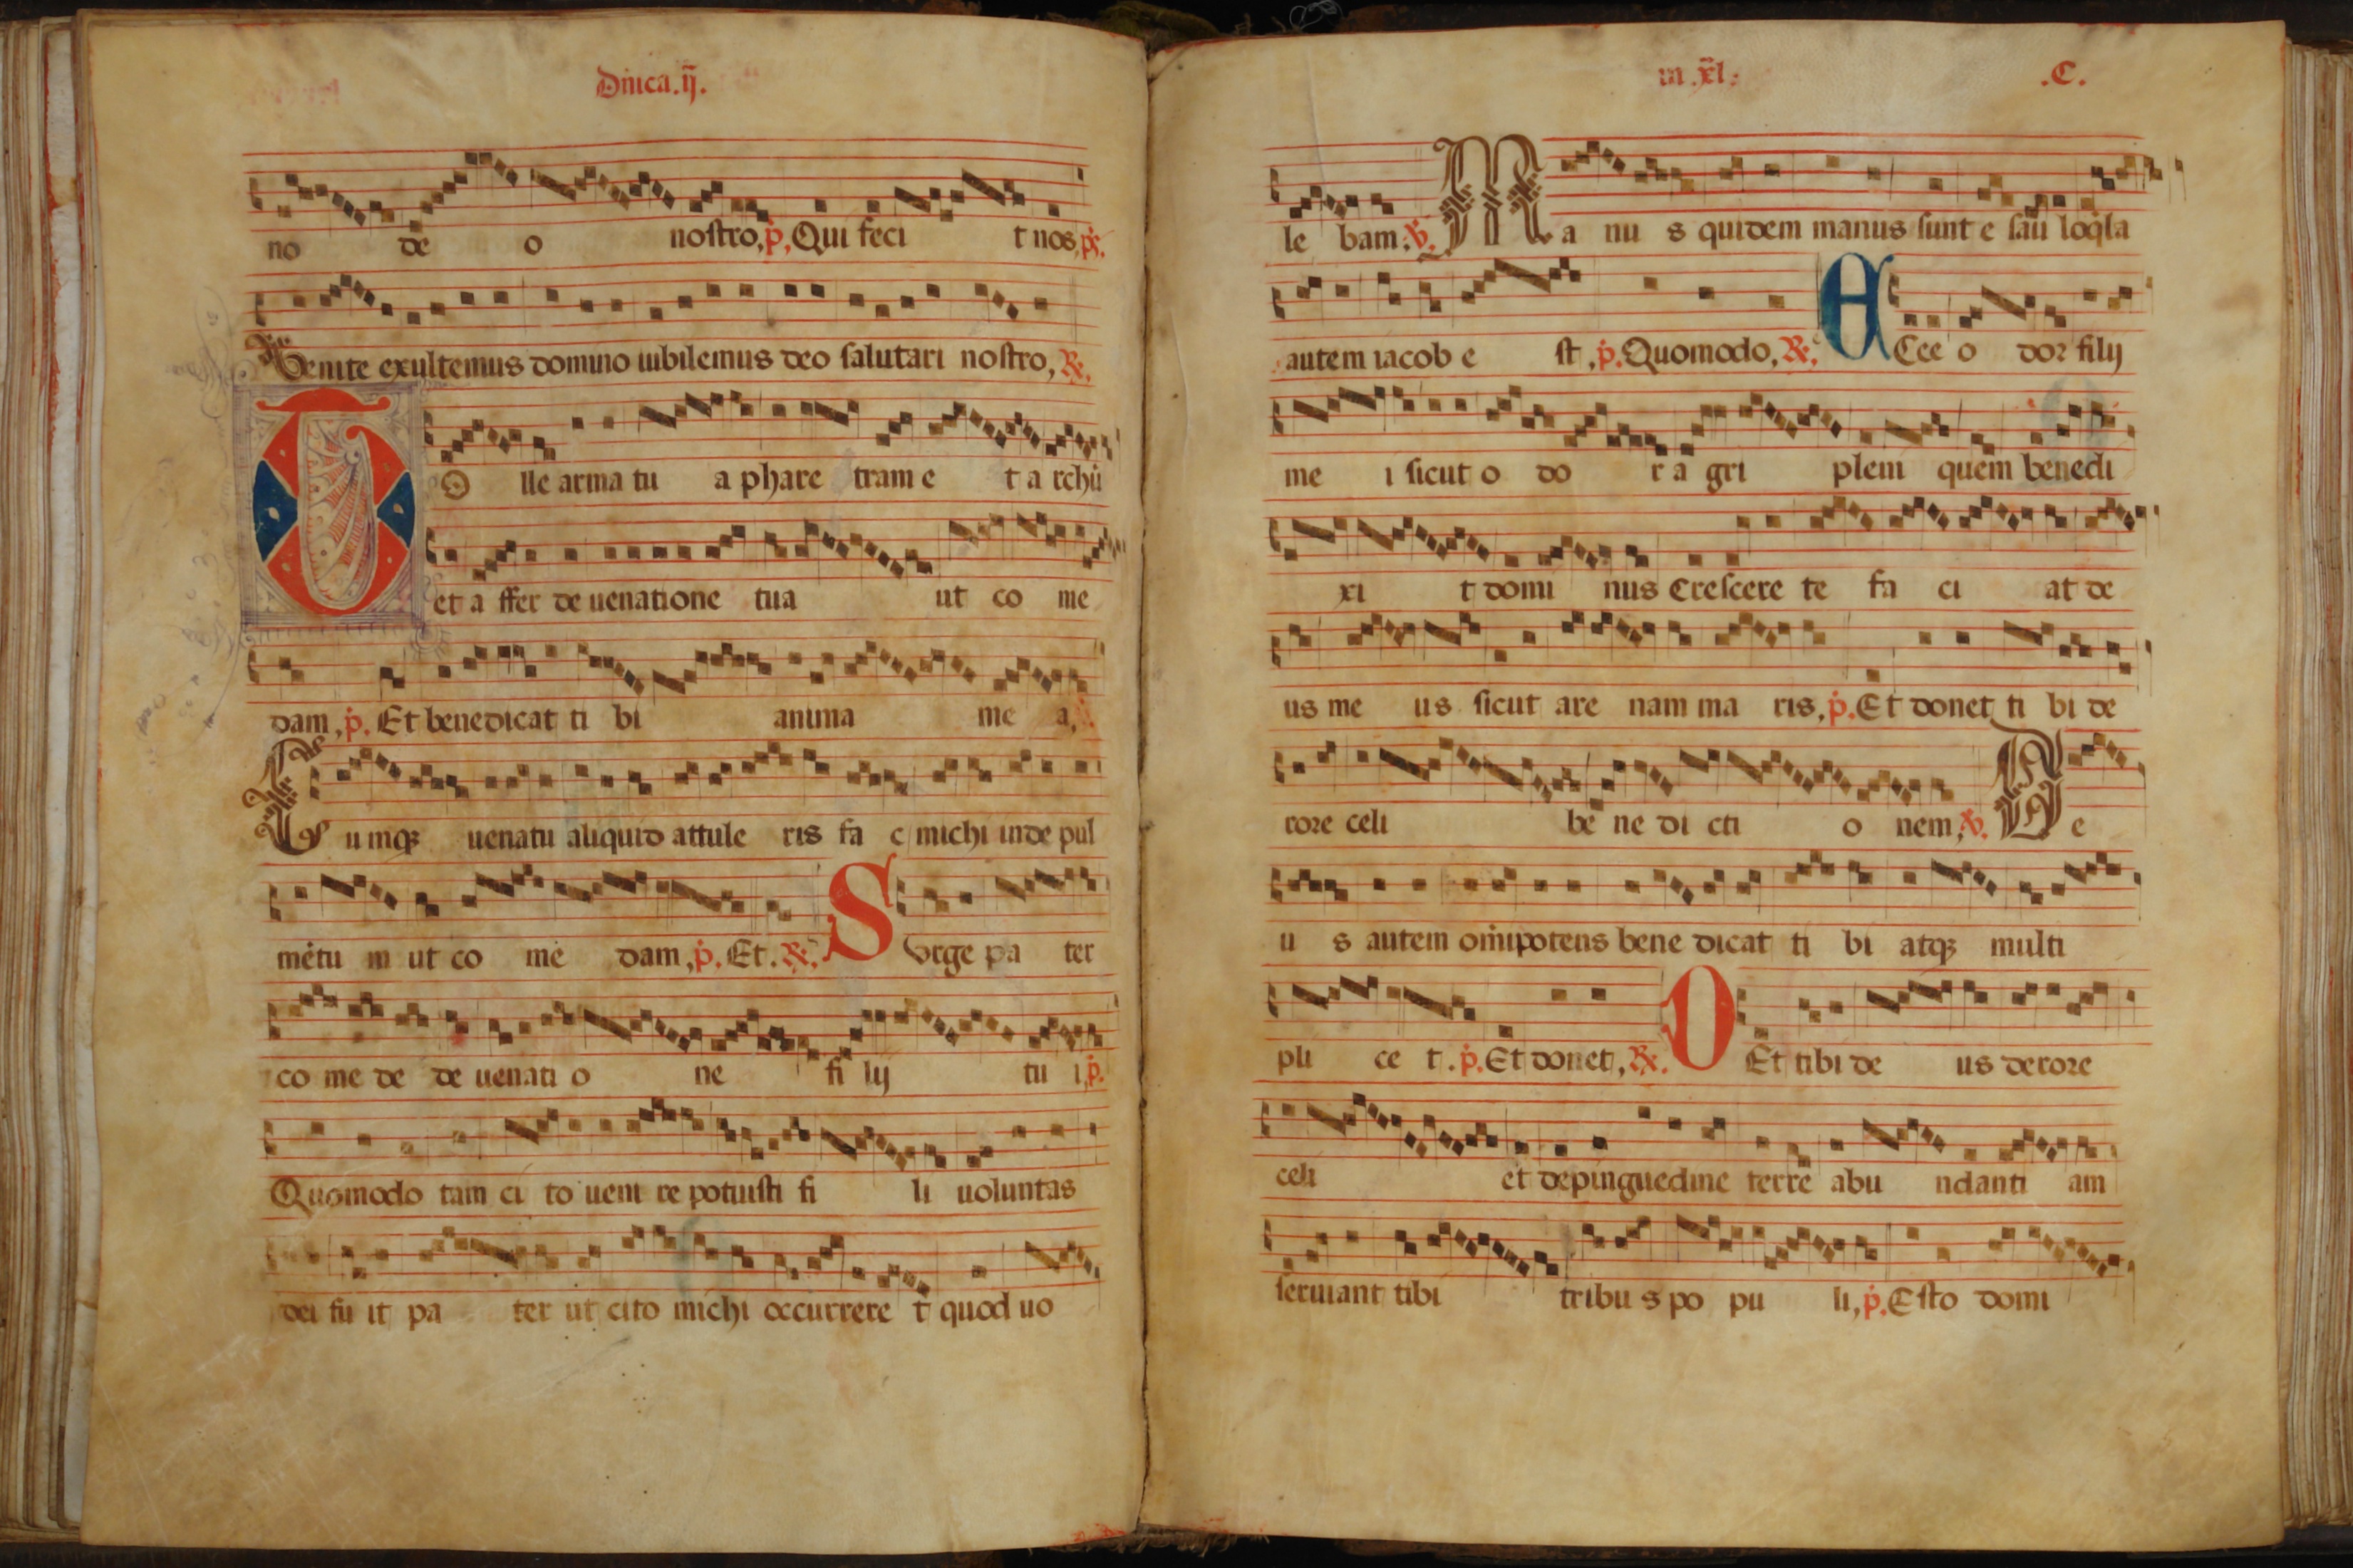 Dnica.ij.
no de o nostro, p, Qui feci t nos, ps.
Venite exultemus domino iubilemus deo salutari nostro, R.
TO lle arma tu a phare tram e t a rchu
et a ffer de uenatione tua ut co me
dam, p. Et benedicat ti bi anima me a,
C umq; uenatu aliquid attule ris fa c michi inde pul
metu m ut co me dam, p. Et. R. S urge pa ter
co me de de uenati o ne fi lij tu i, p.
Quomodo tam ci to ueni re potuisti fi li uoluntas
dei fu it pa ter ut cito michi occurrere t quod uo
in .xl. .C.
le bam. V. M a nu s quidem manus sunt e sau loqla
autem iacob e st, p. Quomodo, R. E Cce o dor filij
me i sicut o do r a gri pleni quem benedi
xi t domi nus Crescere te fa ci at de
us me us sicut are nam ma ris, p. Et donet ti bi de
rore celi be ne di cti o nem, V. D e
u s autem omipotens bene dicat ti bi atq; multi
pli ce t. p. Et donet, R. D Et tibi de us de rore
celi et depinguedine terre abu ndanti am
seruiant tibi tribu s po pu li, p. Esto domi